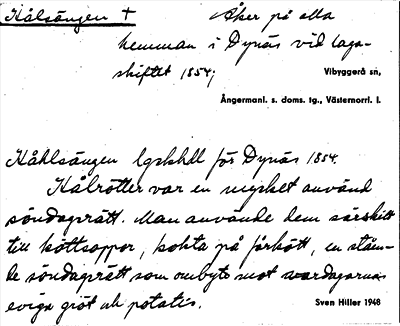 Kålsängen + Åker på alla
hemman i Dynäs vid laga-
skiftet 1854;
Vibyggerå sn,
Ångermanl. s. doms. tg., Västernorrl. l.
Kåhlsängen lgskhll för Dynäs 1854.
Kålrötter var en mycket använd
söndagsrätt. Man använde dem särskilt
till köttsoppor, kokta på fårkött, en ståen-
de söndagsrätt som ombyte mot vardagarnas
eviga gröt och potatis.
Sven Hiller 1948